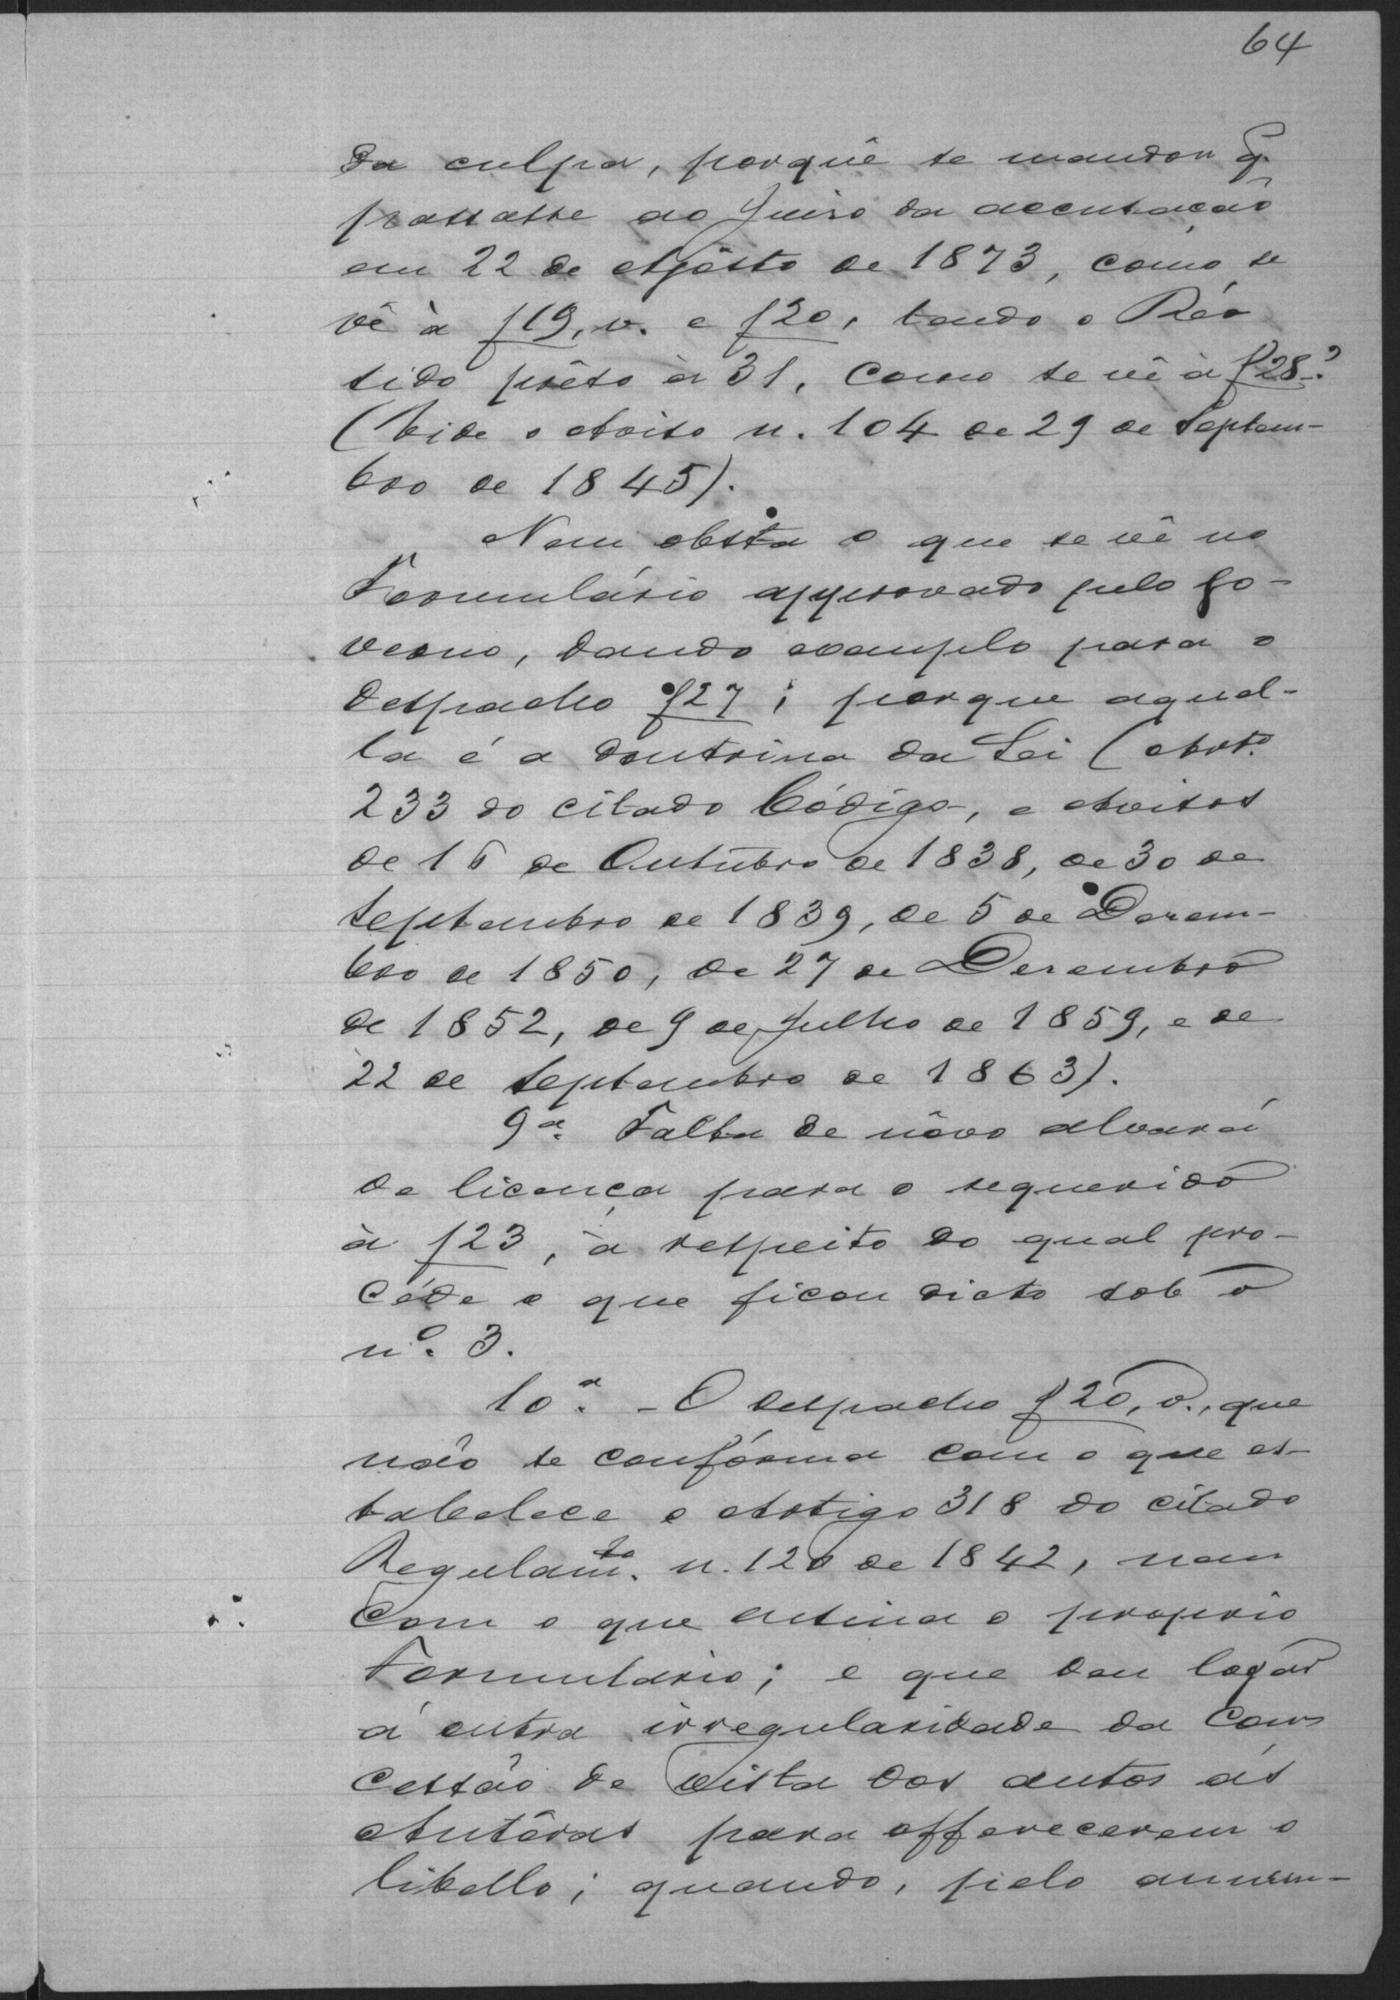 64
da culpa, porquê se mandou q.
passasse ao Juiso da accusação
em 22 de Agôsto de 1873, como se
vê à f19, v. e f20, tendo o Réo
sido prêso à 31, como se vê à f28.?
(Vide o Aviso n. 104 de 29 de Septem-
bro de 1845).
Nem obsta o que se vê no
Formulário approvado pelo Go-
verno, dando exemplo para o
despacho f27; porque aquel-
la é a doutrina da Lei (Art.º
233 do citado Código, e Avisos
de 16 de Outubro de 1838, de 30 de
Septembro de 1839, de 5 de Dezem-
bro de 1850, de 27 de Dezembro
de 1852, de 9 de Julho de 1859, e de
22 de Septembro de 1863).
9ª. Falta de nôvo alvará
de licença para o requerido
à f23, à respeito do qual pro-
céde o que ficou dicto sob o
nº. 3.
10ª. - O despacho f20, v., que
não se confórma com o que es-
tabelece o Artigo 318 do citado
Regulamto. n. 120 de 1842, nem
com o que ensina o proprio
Formulario; e que deu logar
á outra irregularidade da Con
cessão de vista dos autos ás
Autôras para offerecerem o
libello; quando, pelo